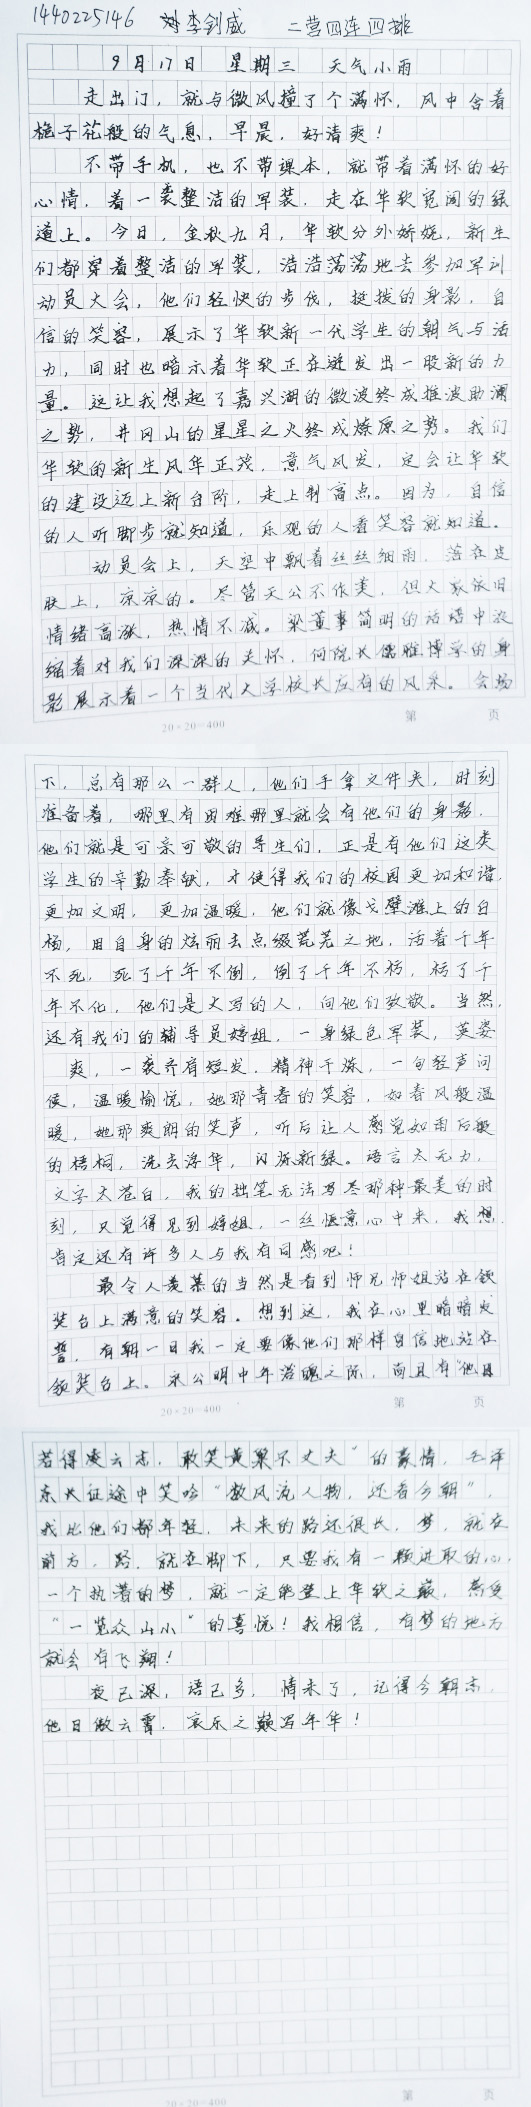 1440225146 李剑威 二营四连四排
9月17日 星期三 天气小雨
走出门，就与微风撞了个满怀，风中含着
栀子花般的气息，早晨，好清爽！
不带手机，也不带课本，就带着满怀的好
心情，着一袭整洁的军装，走在华软宽阔的绿
道上。今日，金秋九月，华软分外娇娆，新生
们都穿着整洁的军装，浩浩荡荡地去参加军训
动员大会，他们轻快的步伐，挺拔的身影，自
信的笑容，展示了华软新一代学生的朝气与活
力，同时也暗示着华软正在迸发出一股新的力
量。这让我想起了嘉兴湖的微波终成推波助澜
之势，井冈山的星星之火终成燎原之势。我们
华软的新生风华正茂，意气风发，定会让华软
的建设迈上新台阶，走上制高点。因为，自信
的人听脚步就知道，乐观的人看笑容就知道。
动员会上，天空中飘着丝丝细雨，落在皮
肤上，凉凉的。尽管天公不作美，但大家依旧
情绪高涨，热情不减。梁董事简明的话语中浓
缩着对我们深深的关怀，何院长儒雅博学的身
影展示着一个当代大学校长应有的风采。会场
20×20=400 第 页
下，总有那么一群人，他们手拿文件夹，时刻
准备着，哪里有困难那里就会有他们的身影，
他们就是可亲可敬的导生们，正是有他们这类
学生的辛勤奉献，才使得我们的校园更加和谐，
更加文明，更加温暖，他们就像戈壁滩上的白
杨，用自身的炫丽去点缀荒芜之地，活着千年
不死，死了千年不倒，倒了千年不朽，朽了千
年不化，他们是大写的人，向他们致敬。当然，
还有我们的辅导员婷姐，一身绿色军装，英姿
爽，一袭齐肩短发，精神干炼，一句轻声问
候，温暖愉悦，她那青春的笑容，如春风般温
暖，她那爽朗的笑声，听后让人感觉如雨后般
的梧桐，洗去浮华，闪烁新绿。语言太无力，
文字太苍白，我的拙笔无法写尽那种最美的时
刻，只觉得见到婷姐，一丝惬意心中来，我想
肯定还有许多人与我有同感吧！
最令人羡慕的当然是看到师兄师姐站在领
奖台上满意的笑容。想到这，我在心里暗暗发
誓，有朝一日我一定要像他们那样自信地站在
领奖台上。宋公明中年落魄之际，尚且有“他日
20×20=400 第 页
若得凌云志，敢笑黄巢不丈夫”的豪情，毛泽
东长征途中笑吟“数风流人物，还看今朝”，
我比他们都年轻，未来的路还很长，梦，就在
前方，路，就在脚下，只要我有一颗进取的心，
一个执着的梦，就一定能登上华软之巅，感受
“一览众山小”的喜悦！我相信，有梦的地方
就会有飞翔！
夜已深，语已多，情未了，记得今朝志，
他日傲云霄，哀乐之巅写年华！
20×20=400 第 页